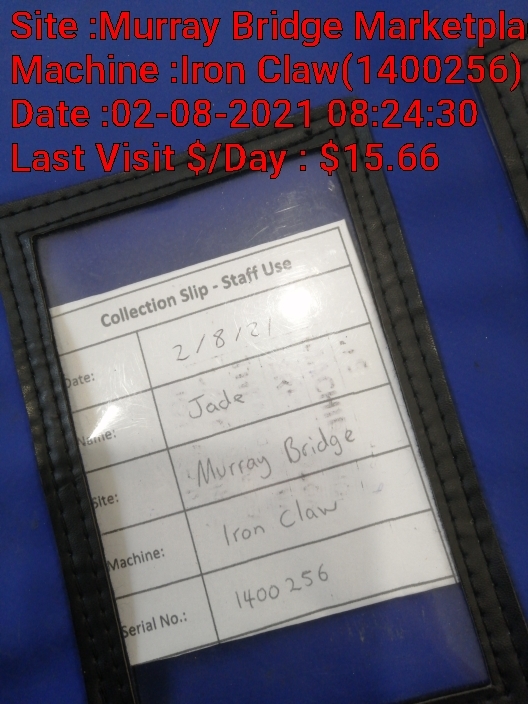 Site :Murray Bridge Marketpla
Machine :Iron Claw(1400256)
Date :02-08-2021 08:24:30
Last Visit $/Day : $15.66
Collection Slip - Staff Use
Date: 2/8/21
Name: Jade
Site: Murray Bridge
Machine: Iron Claw
Serial No.: 1400256